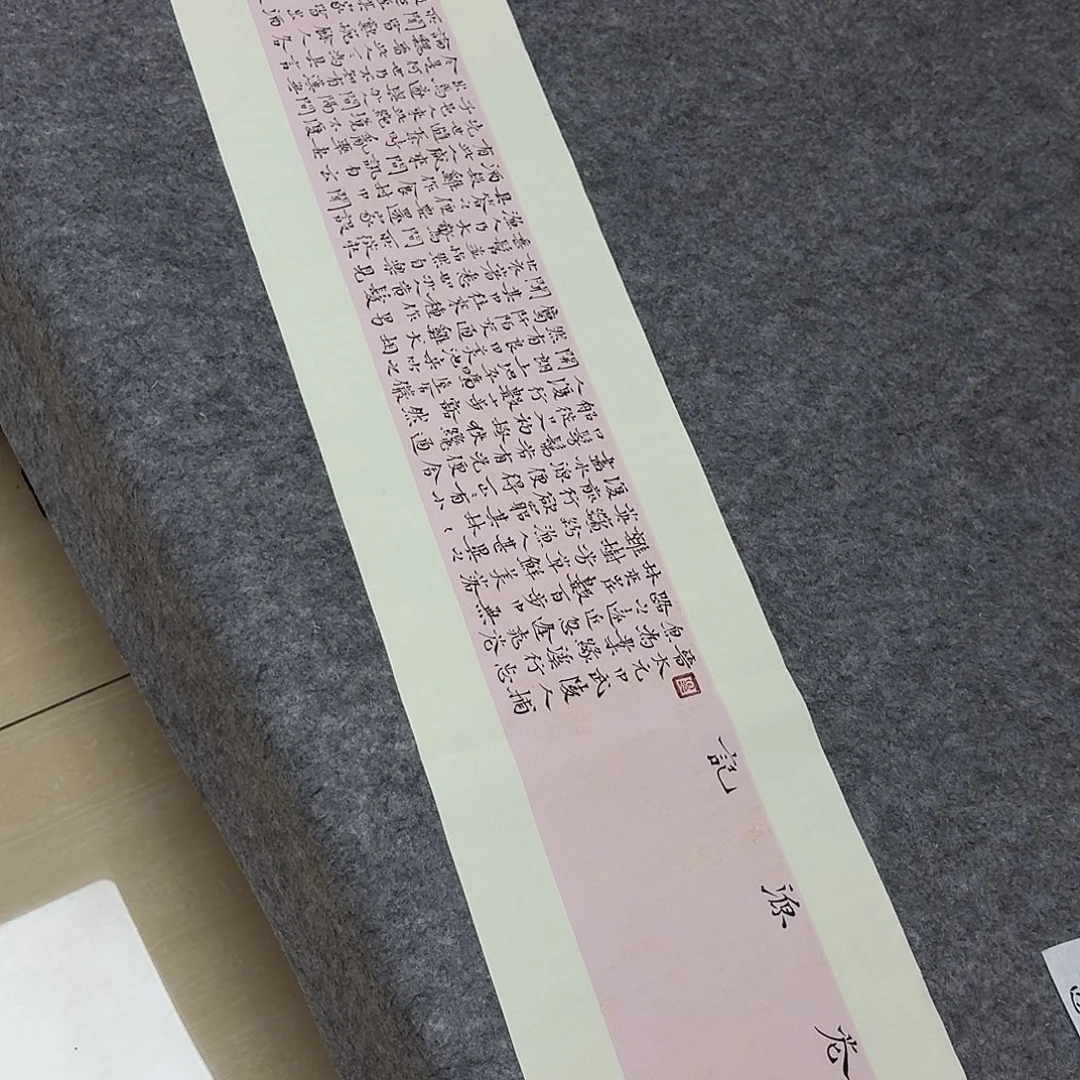 花源記
晉太元中武陵人捕
魚為業緣溪行忘
路之遠近忽逢桃花
林夾岸數百步中無
雜樹芳草鮮美落
英繽紛漁人甚異之
復前行欲窮其林、
盡水源便得一山、有小
口髣髴若有光便舍
船從口入初極狹纔通
人復行數十步豁然
開朗土地平曠屋舍儼
然有良田美池桑竹之
屬阡陌交通雞犬相
聞其中往來種作男
女衣著悉如外人黃髮
垂髫並怡然自樂見
漁人乃大驚問所從來
具答之便要還家設
酒殺雞作食村中聞
有此人咸來問訊自云
先世避秦時亂率妻
子邑人來此絕境不復
出焉遂與外人間隔問
今是何世乃不知有漢無
論魏晉此人一、為具言
所聞皆歎惋餘人各